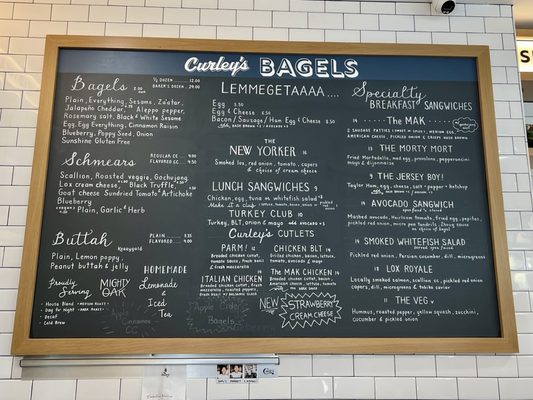 Curley's BAGELS
Bagels
½ DOZEN 12.00
BAKER'S DOZEN 29.00
Plain, Everything, Sesame, Za'atar,
Jalapeño Cheddar, Aleppo pepper,
Rosemary salt, Black & White Sesame
Egg, Egg Everything, Cinnamon Raisin
Blueberry, Poppy Seed, Onion
Sunshine Gluten Free
Schmears
REGULAR CC
FLAVORED CC
Scallion, Roasted veggie, Gochujang
Lox cream cheese, Black Truffle,
Goat cheese Sundried Tomato & Artichoke
Blueberry
Plain, Garlic & Herb
Buttah
PLAIN
FLAVORED
Plain, Lemon poppy,
Peanut butter & jelly
Proudly
Serving
MIGHTY
OAK
House Blend
Day for Night
Decaf
Cold Brew
HOMEMADE
Lemonade
&
Iced
Tea
LEMMEGETAAAA....
Egg
Egg & Cheese
Bacon / Sausage / Ham Egg & Cheese
THE
NEW YORKER
Smoked lox, red onion, tomato, capers
& choice of cream cheese
LUNCH SANDWICHES 9
Chicken, egg, tuna or whitefish salad
Make it a club
TURKEY CLUB 10
Turkey, BLT, onion & mayo
Curley's CUTLETS
PARM!
Breaded chicken cutlet,
tomato sauce, fresh basil
& fresh mozzarella
CHICKEN BLT
Breaded chicken, bacon,
lettuce, tomato,
avocado & mayo
ITALIAN CHICKEN
Breaded chicken cutlet,
fresh mozzarella, roasted
peppers, arugula,
The MAK CHICKEN
Breaded chicken cutlet, bacon,
American cheese, lettuce, tomato
Apple Cider
Bagels
NEW
STRAWBERRY
CREAM CHEESE
Specialty
BREAKFAST SANDWICHES
14 The MAK
AMERICAN CHEESE, PICKLED ONION & CRISPY HASH BROWN
13 THE MORTY MORT
Fried Mortadella, mad egg, provolone, pepperoncini
& dijonnaise
9 THE JERSEY BOY!
Taylor Ham, egg, cheese, salt + pepper + ketchup
14 AVOCADO SANDWICH
Mashed avocado, Heirloom tomato, fried egg, pepitas,
pickled red onion, micro greens, Crunchy sauce
on choice of bagel
14 SMOKED WHITEFISH SALAD
Pickled red onion, Persian cucumber, dill, microgreens
18 LOX ROYALE
Locally smoked salmon, scallion cc, pickled red onion
capers, dill, microgreens & tobiko caviar
11 THE VEG
Hummus, roasted pepper, yellow squash, zucchini,
cucumber & pickled onion